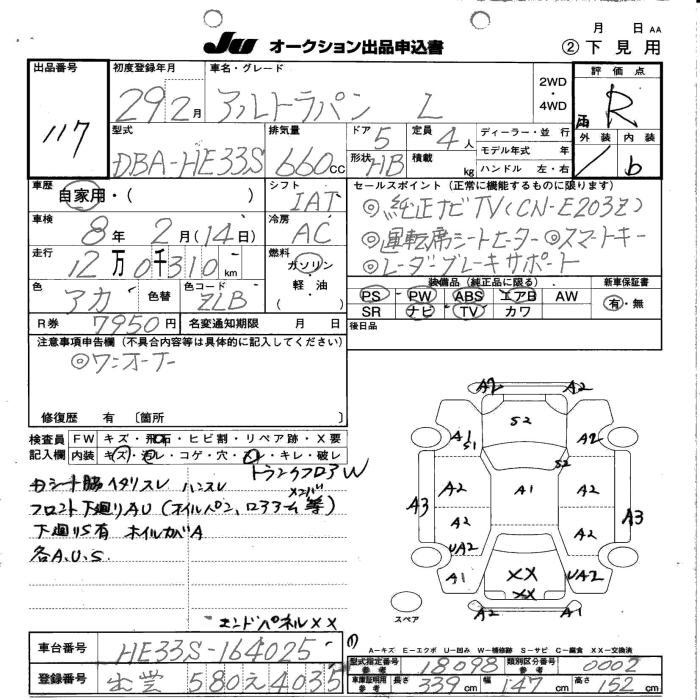 月 日 AA
JU オークション出品申込書 ② 下見用
出品番号 117
初度登録年月 29 2月
車名・グレード アルトラパン L
2WD・4WD
評価点 R
外装 内装 b
型式 DBA-HE33S
排気量 660cc
ドア 5 定員 4人
形状 HB 積載 kg
ディーラー・並行
モデル年式 年
ハンドル 左・右
車歴 自家用・( )
シフト IAT
セールスポイント(正常に機能するものに限ります)
◎純正ナビTV(CN-E203Z)
◎運転席シートヒーター ◎スマートキー
◎レーダブレーキサポート
車検 8年 2月(14日)
冷房 AC
走行 12万0千310km
燃料 ガソリン・軽油・( )
色 アカ 色替 色コード ZLB
装備品(純正品に限る) 新車保証書
PS PW ABS エアB AW 有・無
SR ナビ TV カワ
R券 7950円 名変通知期限 月 日
後日品
注意事項申告欄(不具合内容等は具体的に記入してください)
◎ワンオーナー
修復歴 有 〔箇所 〕
検査員記入欄 FW キズ・飛石・ヒビ割・リペア跡・X要
内装 キズ・汚レ・コゲ・穴・スレ・キレ・破レ
トランクフロアW
カシート脇ヘタリスレ ハンスレ
フロント下廻りAU(オイルパン、ロアアーム メンバ 等)
下廻りS有 ホイルカバA
各A.U.S.
エンドパネルXX
A2 A2
S2
A1 S1 A2
S2
A3 A2 A1 A2 A3
A2 A2
UA2
A1 XX UA2
XX
A2 A1
スペア
A-キズ E-エクボ U-凹み W-補修跡 S-サビ C-腐食 XX-交換済
車台番号 HE33S-164025
型式指定番号 参考 18098 類別区分番号 参考 0002
登録番号 出雲 580え4035
車庫証明用 参考 長さ 339cm 幅 147cm 高さ 152cm